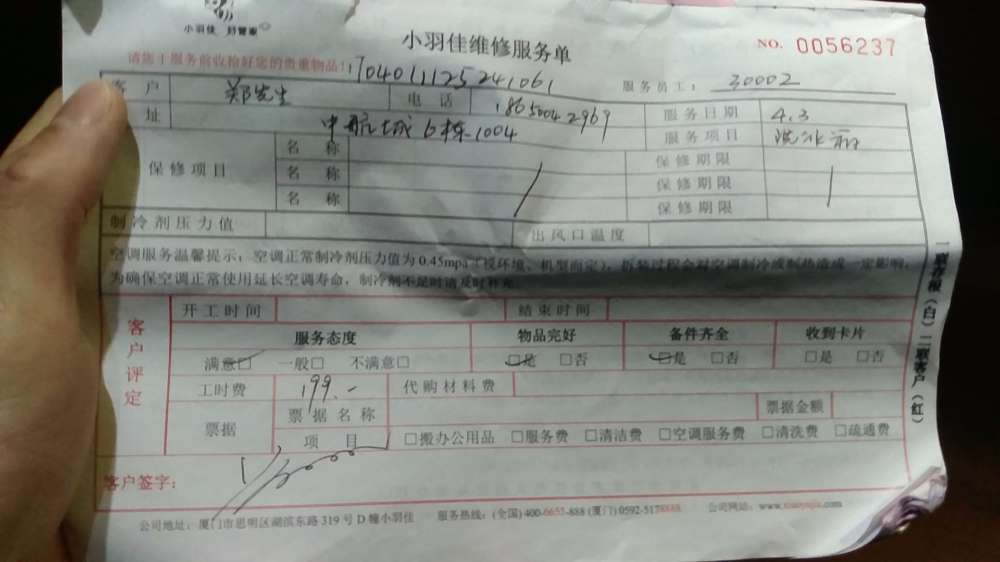 小羽佳 好管家
小羽佳维修服务单
NO. 0056237
请您于服务前收拾好您的贵重物品!
1704011125241061
服务员工: 30002
客户 郑先生 电话 18650042969 服务日期 4.3
址 中航城6栋1004 服务项目
保修项目 名称 保修期限
名称 保修期限
名称 保修期限
制冷剂压力值 出风口温度
空调服务温馨提示: 空调正常制冷剂压力值为0.45mpa(视环境、机型而定), 拆装过程会对空调制冷或制热造成一定影响,
为确保空调正常使用延长空调寿命, 制冷剂不足时请及时补充。
客户评定
开工时间 结束时间
服务态度 物品完好 备件齐全 收到卡片
满意□ 一般□ 不满意□ □是 □否 □是 □否 □是 □否
工时费 199.- 代购材料费
票据 票据名称 票据金额
项目 □搬办公用品 □服务费 □清洁费 □空调服务费 □清洗费 □疏通费
客户签字:
一联存根(白)二联客户(红)
公司地址: 厦门市思明区湖滨东路319号D幢小羽佳 服务热线: (全国) 400-6655-888 (厦门) 0592-5178888 公司网站: www.xiaoyujia.com